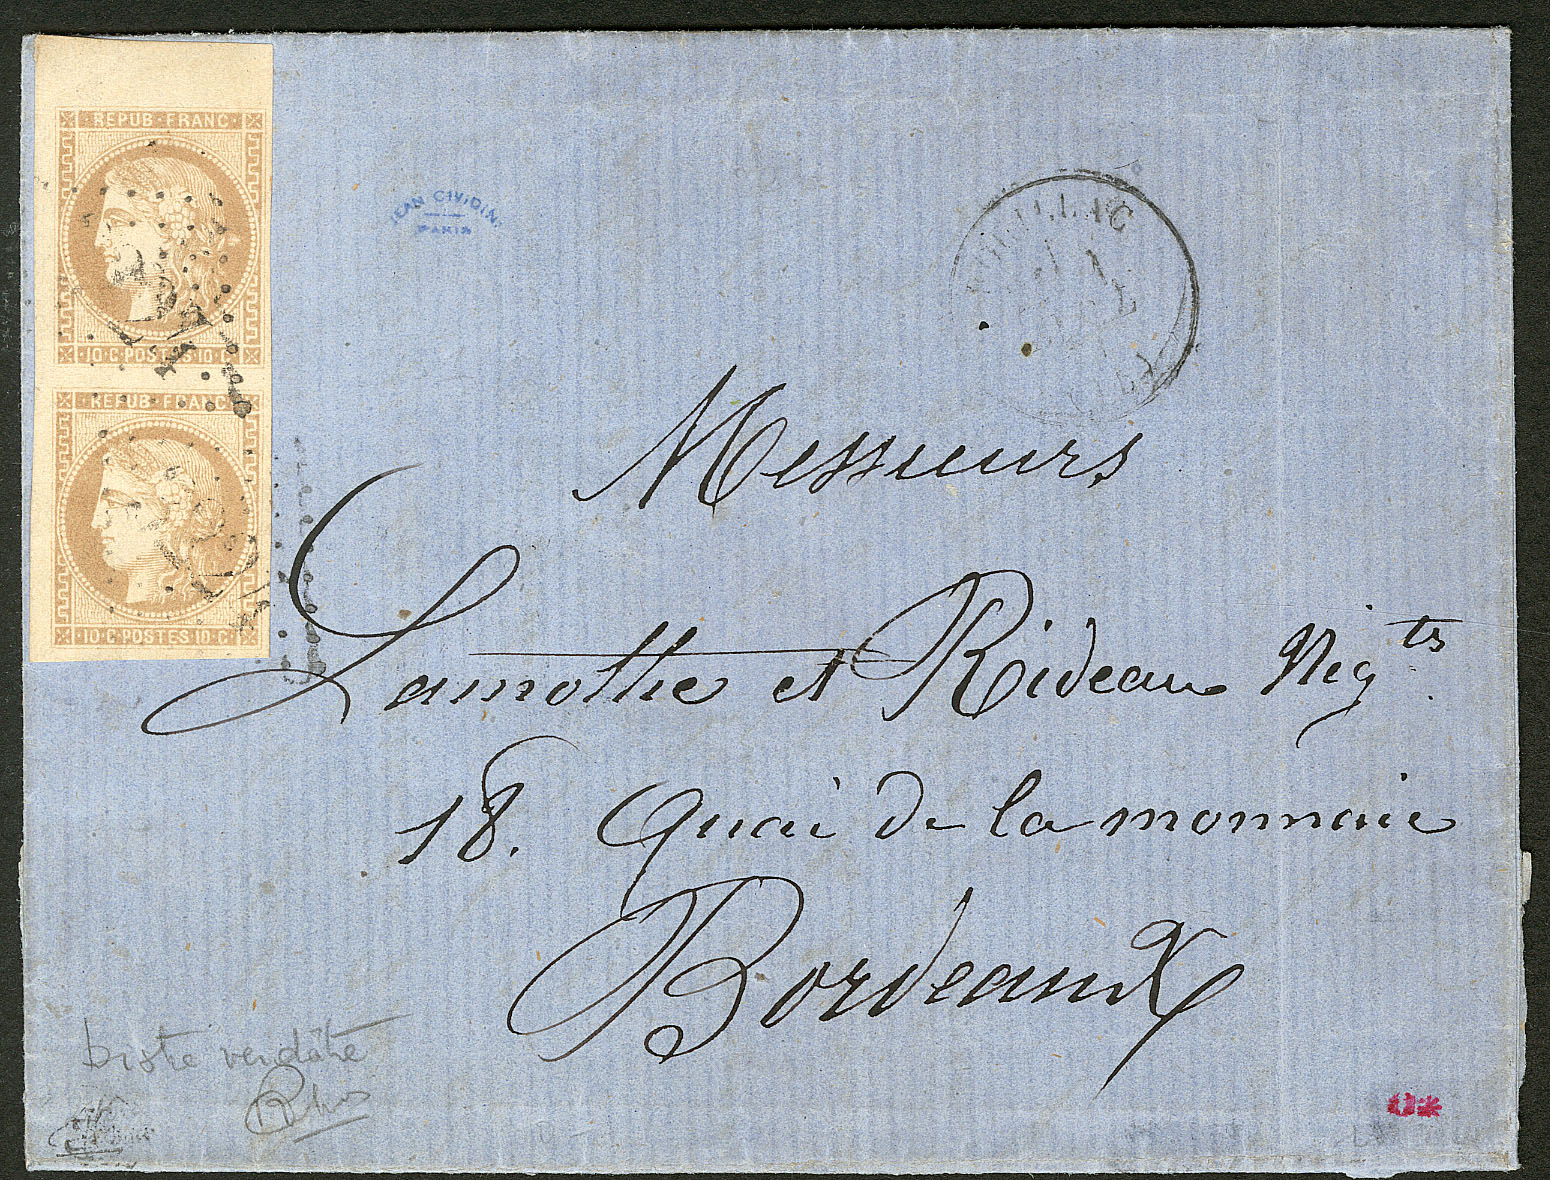 REPUB·FRANC·
10·C·POSTES·10·C·
REPUB·FRANC·
10·C·POSTES·10·C·
JEAN CIVIDINI
PARIS
Messieurs
Lamothe et Rideau Nég ts
18. Quai de la monnaie
Bordeaux
bistre verdâtre